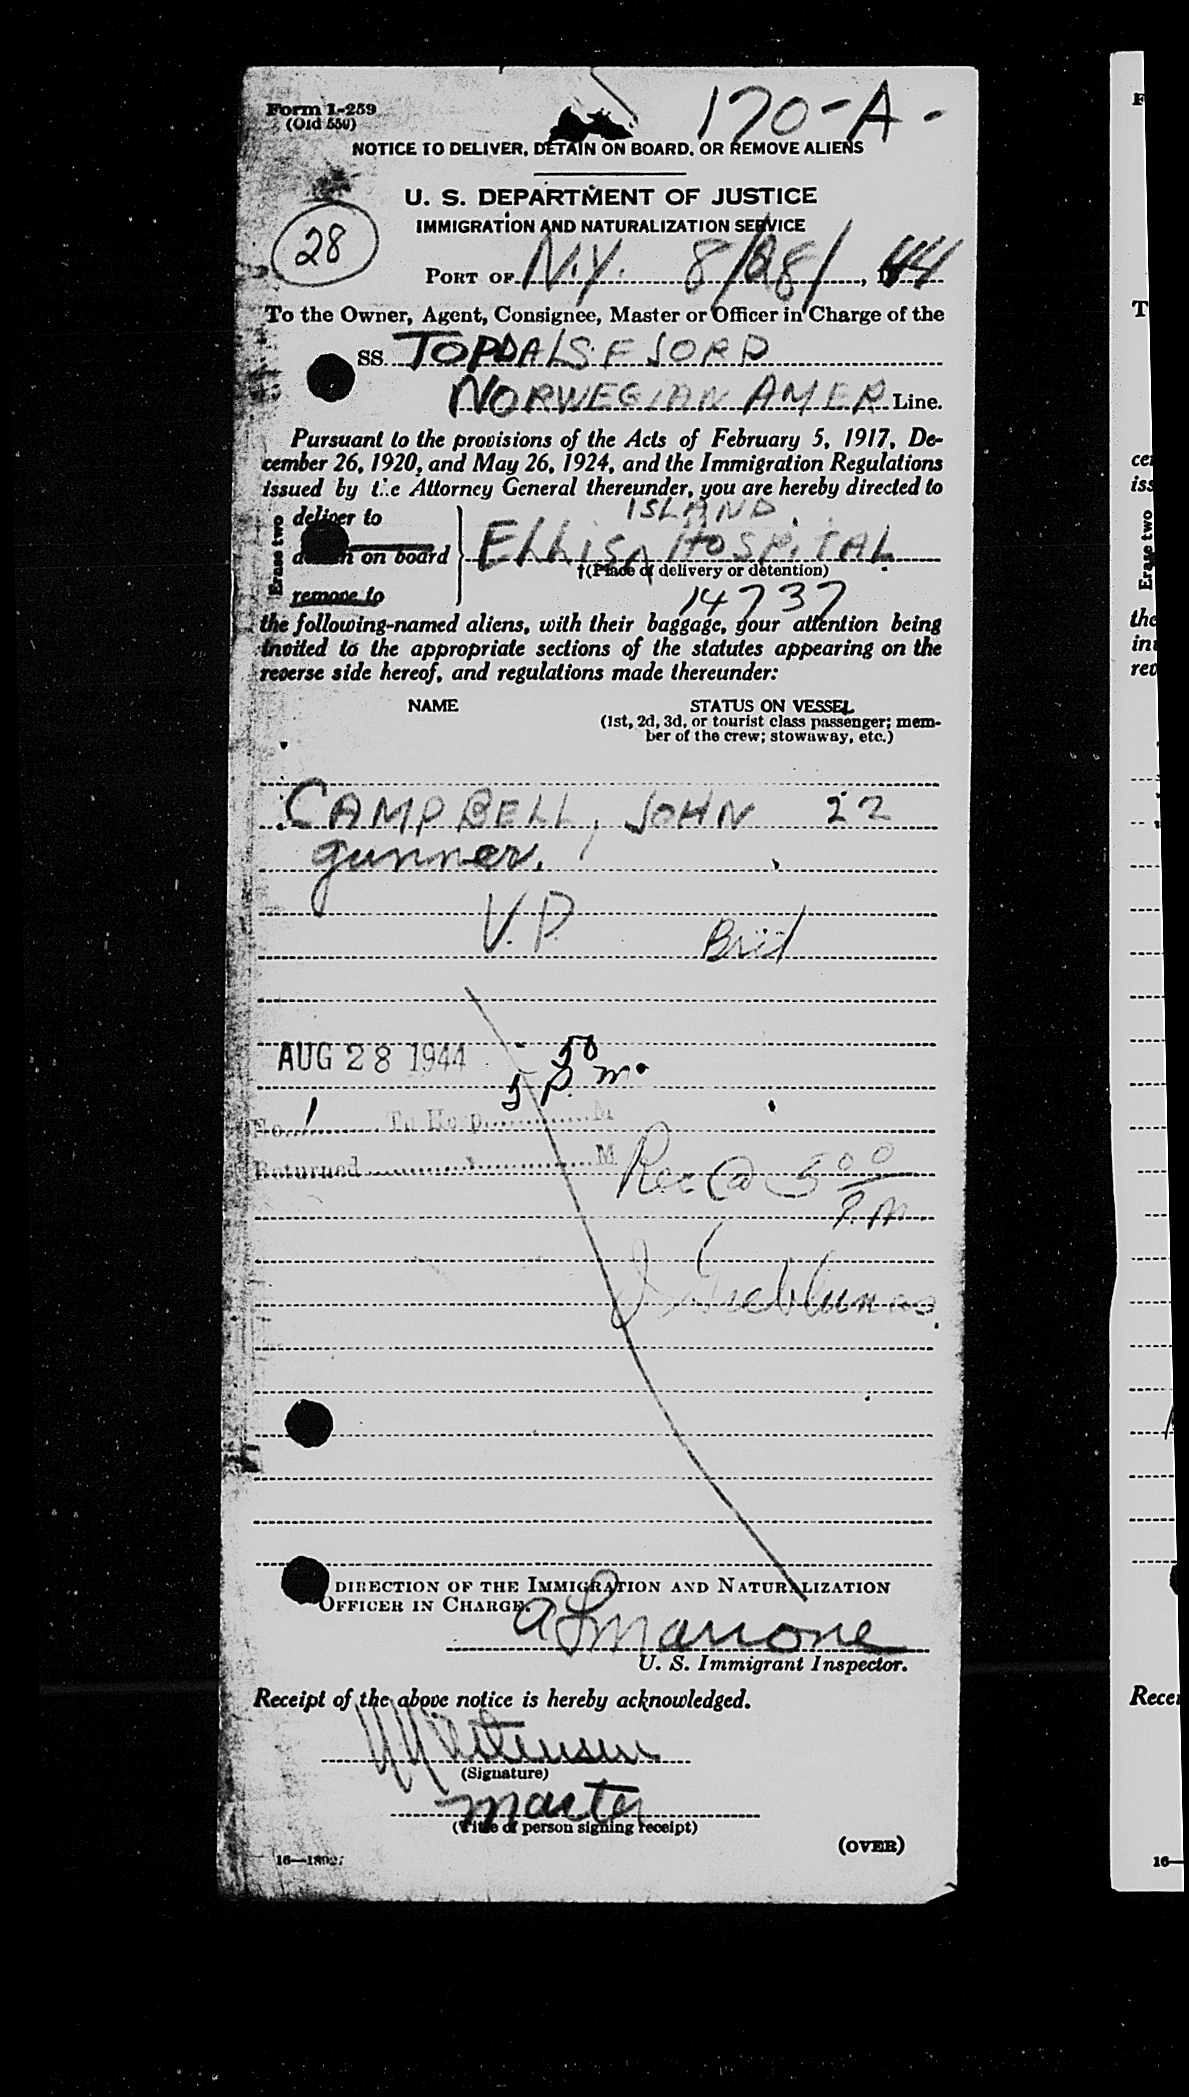 Form I-259
(Old 550)
170-A-
NOTICE TO DELIVER, DETAIN ON BOARD, OR REMOVE ALIENS
U. S. DEPARTMENT OF JUSTICE
IMMIGRATION AND NATURALIZATION SERVICE
28
PORT OF N.Y. 8/28/, 44
To the Owner, Agent, Consignee, Master or Officer in Charge of the
SS. TOPDALSFJORD
NORWEGIAN AMER Line.
Pursuant to the provisions of the Acts of February 5, 1917, De-
cember 26, 1920, and May 26, 1924, and the Immigration Regulations
issued by the Attorney General thereunder, you are hereby directed to
Erase two
deliver to
on board
remove to
ISLAND
ELLIS HOSPITAL
†(Place of delivery or detention)
14737
the following-named aliens, with their baggage, your attention being
invited to the appropriate sections of the statutes appearing on the
reverse side hereof, and regulations made thereunder:
NAME STATUS ON VESSEL
(1st, 2d, 3d, or tourist class passenger; mem-
ber of the crew; stowaway, etc.)
CAMPBELL, JOHN 22
gunner.
V.D. Brit
AUG 28 1944 5 50 P. m.
No. 1 To Hosp. M
Returned M
Rec @ 5 00
P.M.
DIRECTION OF THE IMMIGRATION AND NATURALIZATION
OFFICER IN CHARGE
A L Marrone
U. S. Immigrant Inspector.
Receipt of the above notice is hereby acknowledged.
(Signature)
Master
(Title of person signing receipt)
(OVER)